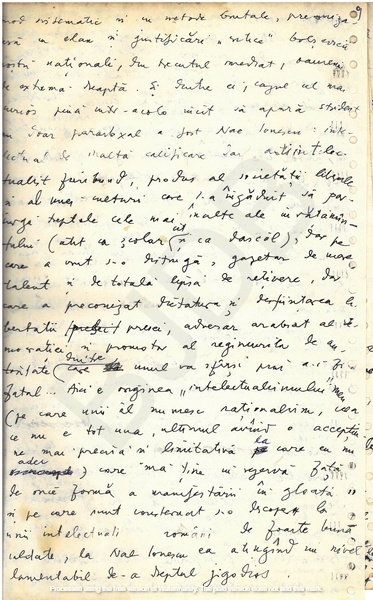 mod sistematic și cu metode brutale,
în elan și justificări
noștri naționali, din trecutul imediat, oameni
de extremă dreaptă. Și dintre ei, cazul cel mai
curios până într-acolo încît să apară strident
nu doar paradoxal a fost Nae Ionescu: inte-
lectual de înaltă calificare dar antiintelec-
tualist furibund, produs al societății liberale
și al unei culturi care i-a îngăduit să par-
curgă treptele cele mai înalte ale învățămîn-
tului (atît ca școlar cît și ca dascăl), dar pe
care a vrut s-o distrugă, gazetar de mare
talent și de totală lipsă de reținere, dar
care a preconizat dictatura și desființarea li-
bertății presei, adversar al de-
mocrației și promotor al regimurilor de au-
toritate (care dintre unul va sfârși prin a-i fi
fatal... Aici e originea "intelectualismului" meu
(pe care unii îl numesc raționalism, ceea
ce nu e tot una, ultimul având o accepțiune
mai precisă și limitativă la care eu nu
ader) care mă ține în rezervă față
de orice formă a manifestării în gloată
și pe care sunt consternat s-o descopăr la
unii intelectuali români de foarte bună
calitate, la Nae Ionescu ea atingând un nivel
lamentabil de-a dreptul jignitor.